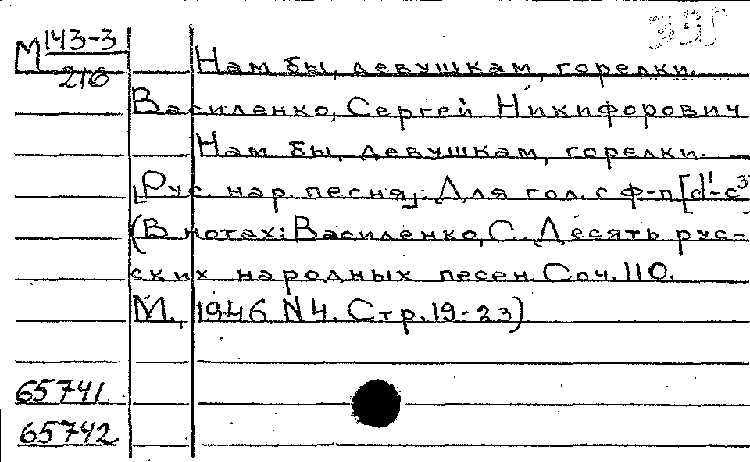 М 143-3
216
Нам бы, девушкам, горелки.
Василенко, Сергей Никифорович
Нам бы, девушкам, горелки.
[Рус. нар. песня]. Для гол. с ф-п [d'-c³]
(В нотах: Василенко, С. Десять рус-
ских народных песен. Соч. 110.
М., 1946 N4. Стр. 19-23)
65741
65742